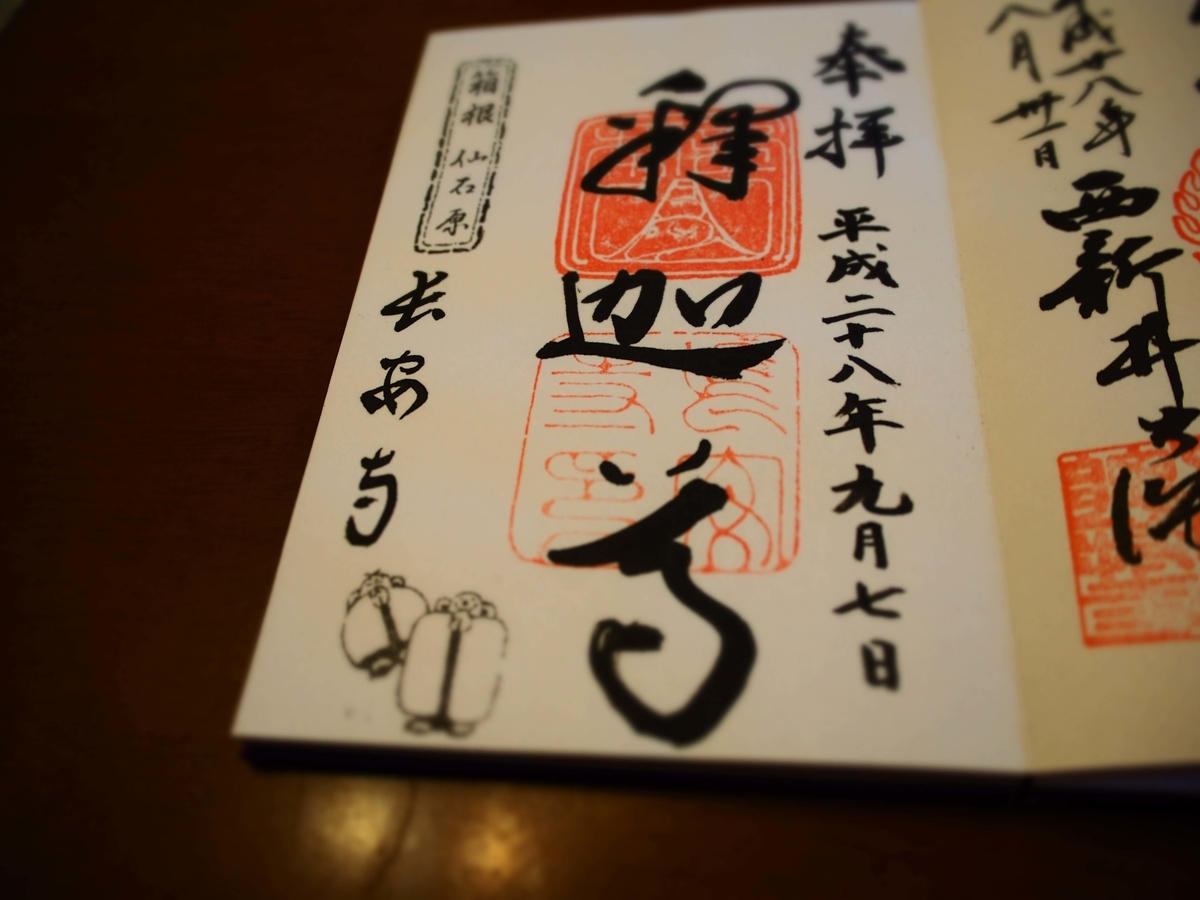 平成廿八年
八月卅一日
西新井大師
奉拝 平成二十八年九月七日
釋迦尊
箱根 仙石原
長安寺